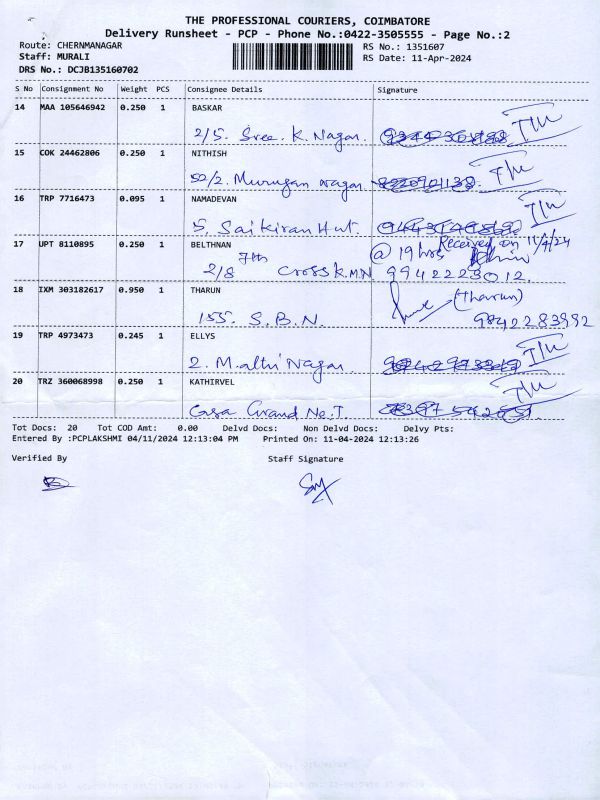 THE PROFESSIONAL COURIERS, COIMBATORE
Delivery Runsheet - PCP - Phone No.:0422-3505555 - Page No.:2
Route: CHERNMANAGAR RS No.: 1351607
Staff: MURALI RS Date: 11-Apr-2024
DRS No.: DCJB135160702
S No Consignment No Weight PCS Consignee Details Signature
14 MAA 105646942 0.250 1 BASKAR
2/5. Sree. K. Nagar.
15 COK 24462806 0.250 1 NITHISH
50/2. Murugan Nagar
16 TRP 7716473 0.095 1 NAMADEVAN
5. Sai Kiran Hut.
Received on 11/4/24
17 UPT 8110895 0.250 1 BELTHNAN @ 19 hrs
7th
2/8 Cross K.M.N 9942223012.
18 IXM 303182617 0.950 1 THARUN (Tharun)
155. S.B.N. 9842283992
19 TRP 4973473 0.245 1 ELLYS
2. Malthi Nagar.
20 TRZ 360068998 0.250 1 KATHIRVEL
Casa Grand Ne.T.
Tot Docs: 20 Tot COD Amt: 0.00 Delvd Docs: Non Delvd Docs: Delvy Pts:
Entered By :PCPLAKSHMI 04/11/2024 12:13:04 PM Printed On: 11-04-2024 12:13:26
Verified By Staff Signature